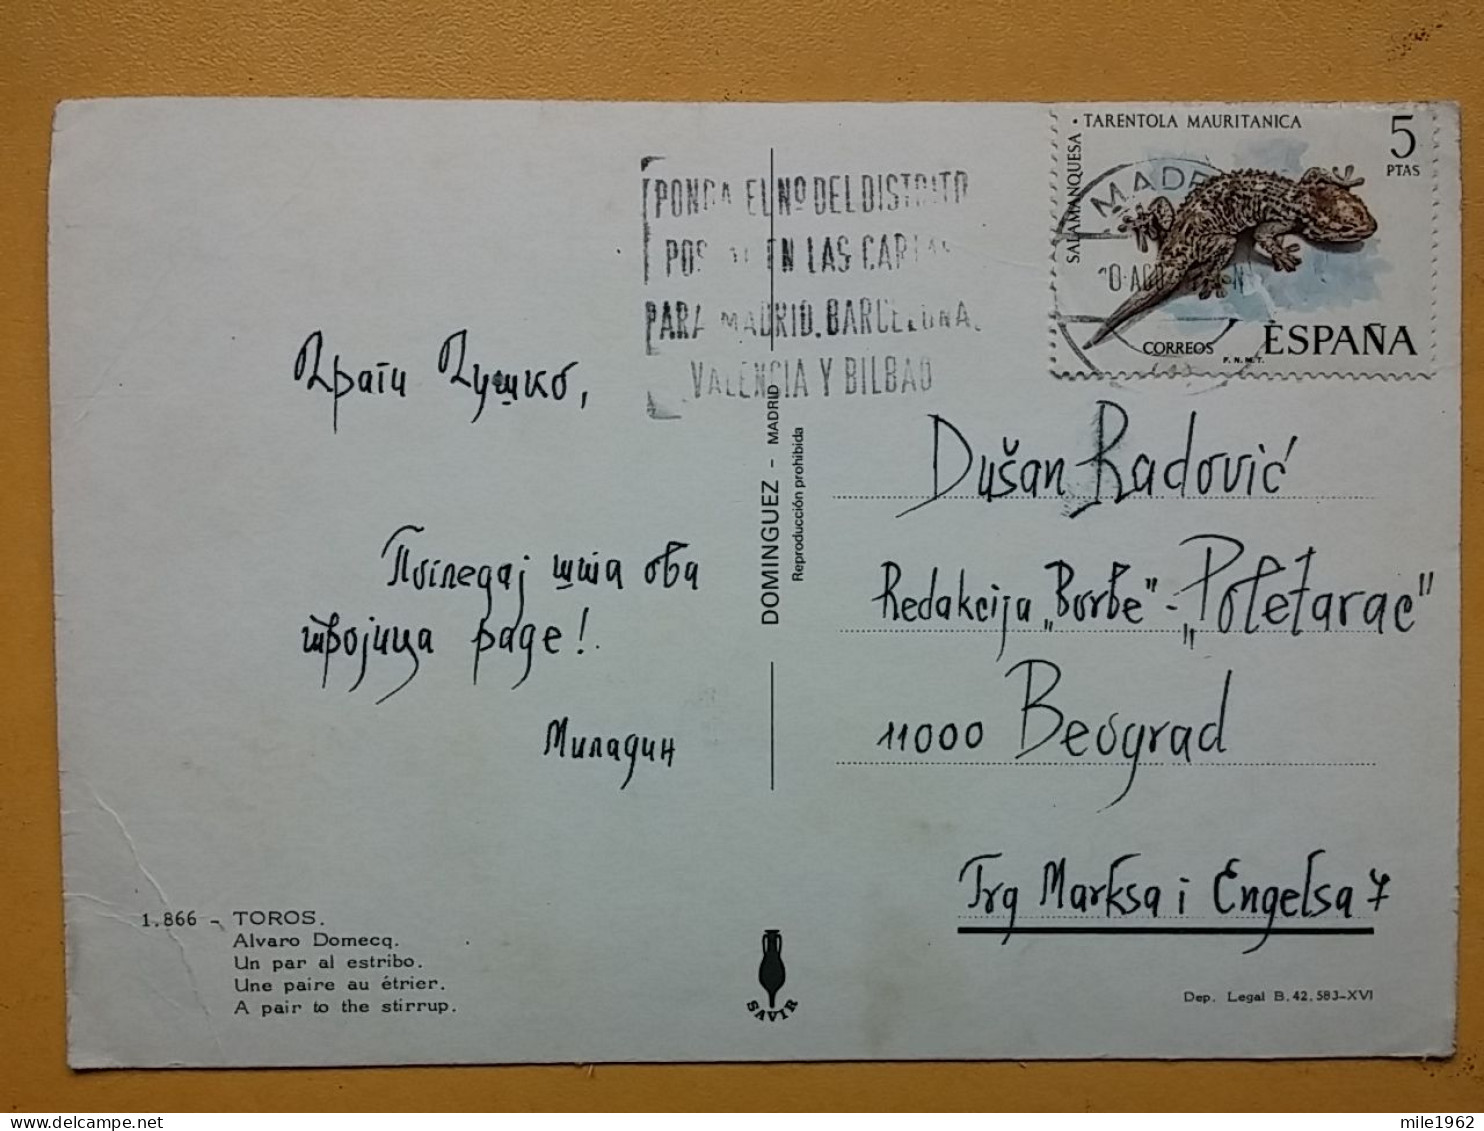 SALAMANQUESA • TARENTOLA MAURITANICA
5
PTAS
CORREOS
F.N.M.T.
ESPAÑA
MADR
PONGA EL Nº DEL DISTRITO
POSTAL EN LAS CARTAS
PARA MADRID, BARCELONA,
VALENCIA Y BILBAO
Драги Душко,
Погледај шта ова
тројица раде!
Миладин
DOMINGUEZ - MADRID
Reproducción prohibida
Dušan Radović
Redakcija „Borbe" - „Poletarac"
11000 Beograd
Trg Marksa i Engelsa 7
1.866 - TOROS.
Alvaro Domecq.
Un par al estribo.
Une paire au étrier.
A pair to the stirrup.
SAVIR
Dep. Legal B. 42.583-XVI
mile1962